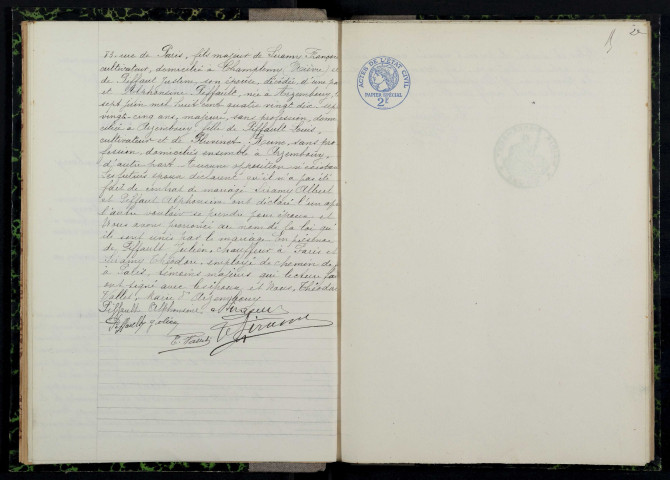 83, rue de Paris, fils majeur de Seramy François
cultivateur, domicilié à Champlemy (Nièvre) et
de Piffaut Justine, son épouse, décédée d'une part
et Alphonsine Piffault, née à Arzembouy, le
sept juin mil huit cent quatre vingt dix sept
vingt-cinq ans, majeure, sans profession, domi
ciliée à Arzembouy fille de Piffault Louis,
cultivateur et de sans pro
fession domiciliés ensemble à Arzembouy,
d'autre part. Aucune opposition n'existant
Les futurs époux déclarent qu'il n'a pas été
fait de contrat de mariage. Seramy Albert
et Piffaut Alphonsine ont déclaré l'un après
l'autre vouloir se prendre pour époux et
Nous avons prononcé au nom de la loi qu'
ils sont unis par le mariage. En présence
de Piffault Julien, chauffeur à Paris et
Seramy Théodore, employé de chemin de fer
à Paris, témoins majeurs qui lecture faite
ont signé avec les époux et Nous, Théodore
Maire d'Arzembouy
Piffault Alphonsine Seramy
Piffault Julien
ACTES DE L'ÉTAT CIVIL
PAPIER SPÉCIAL
2F